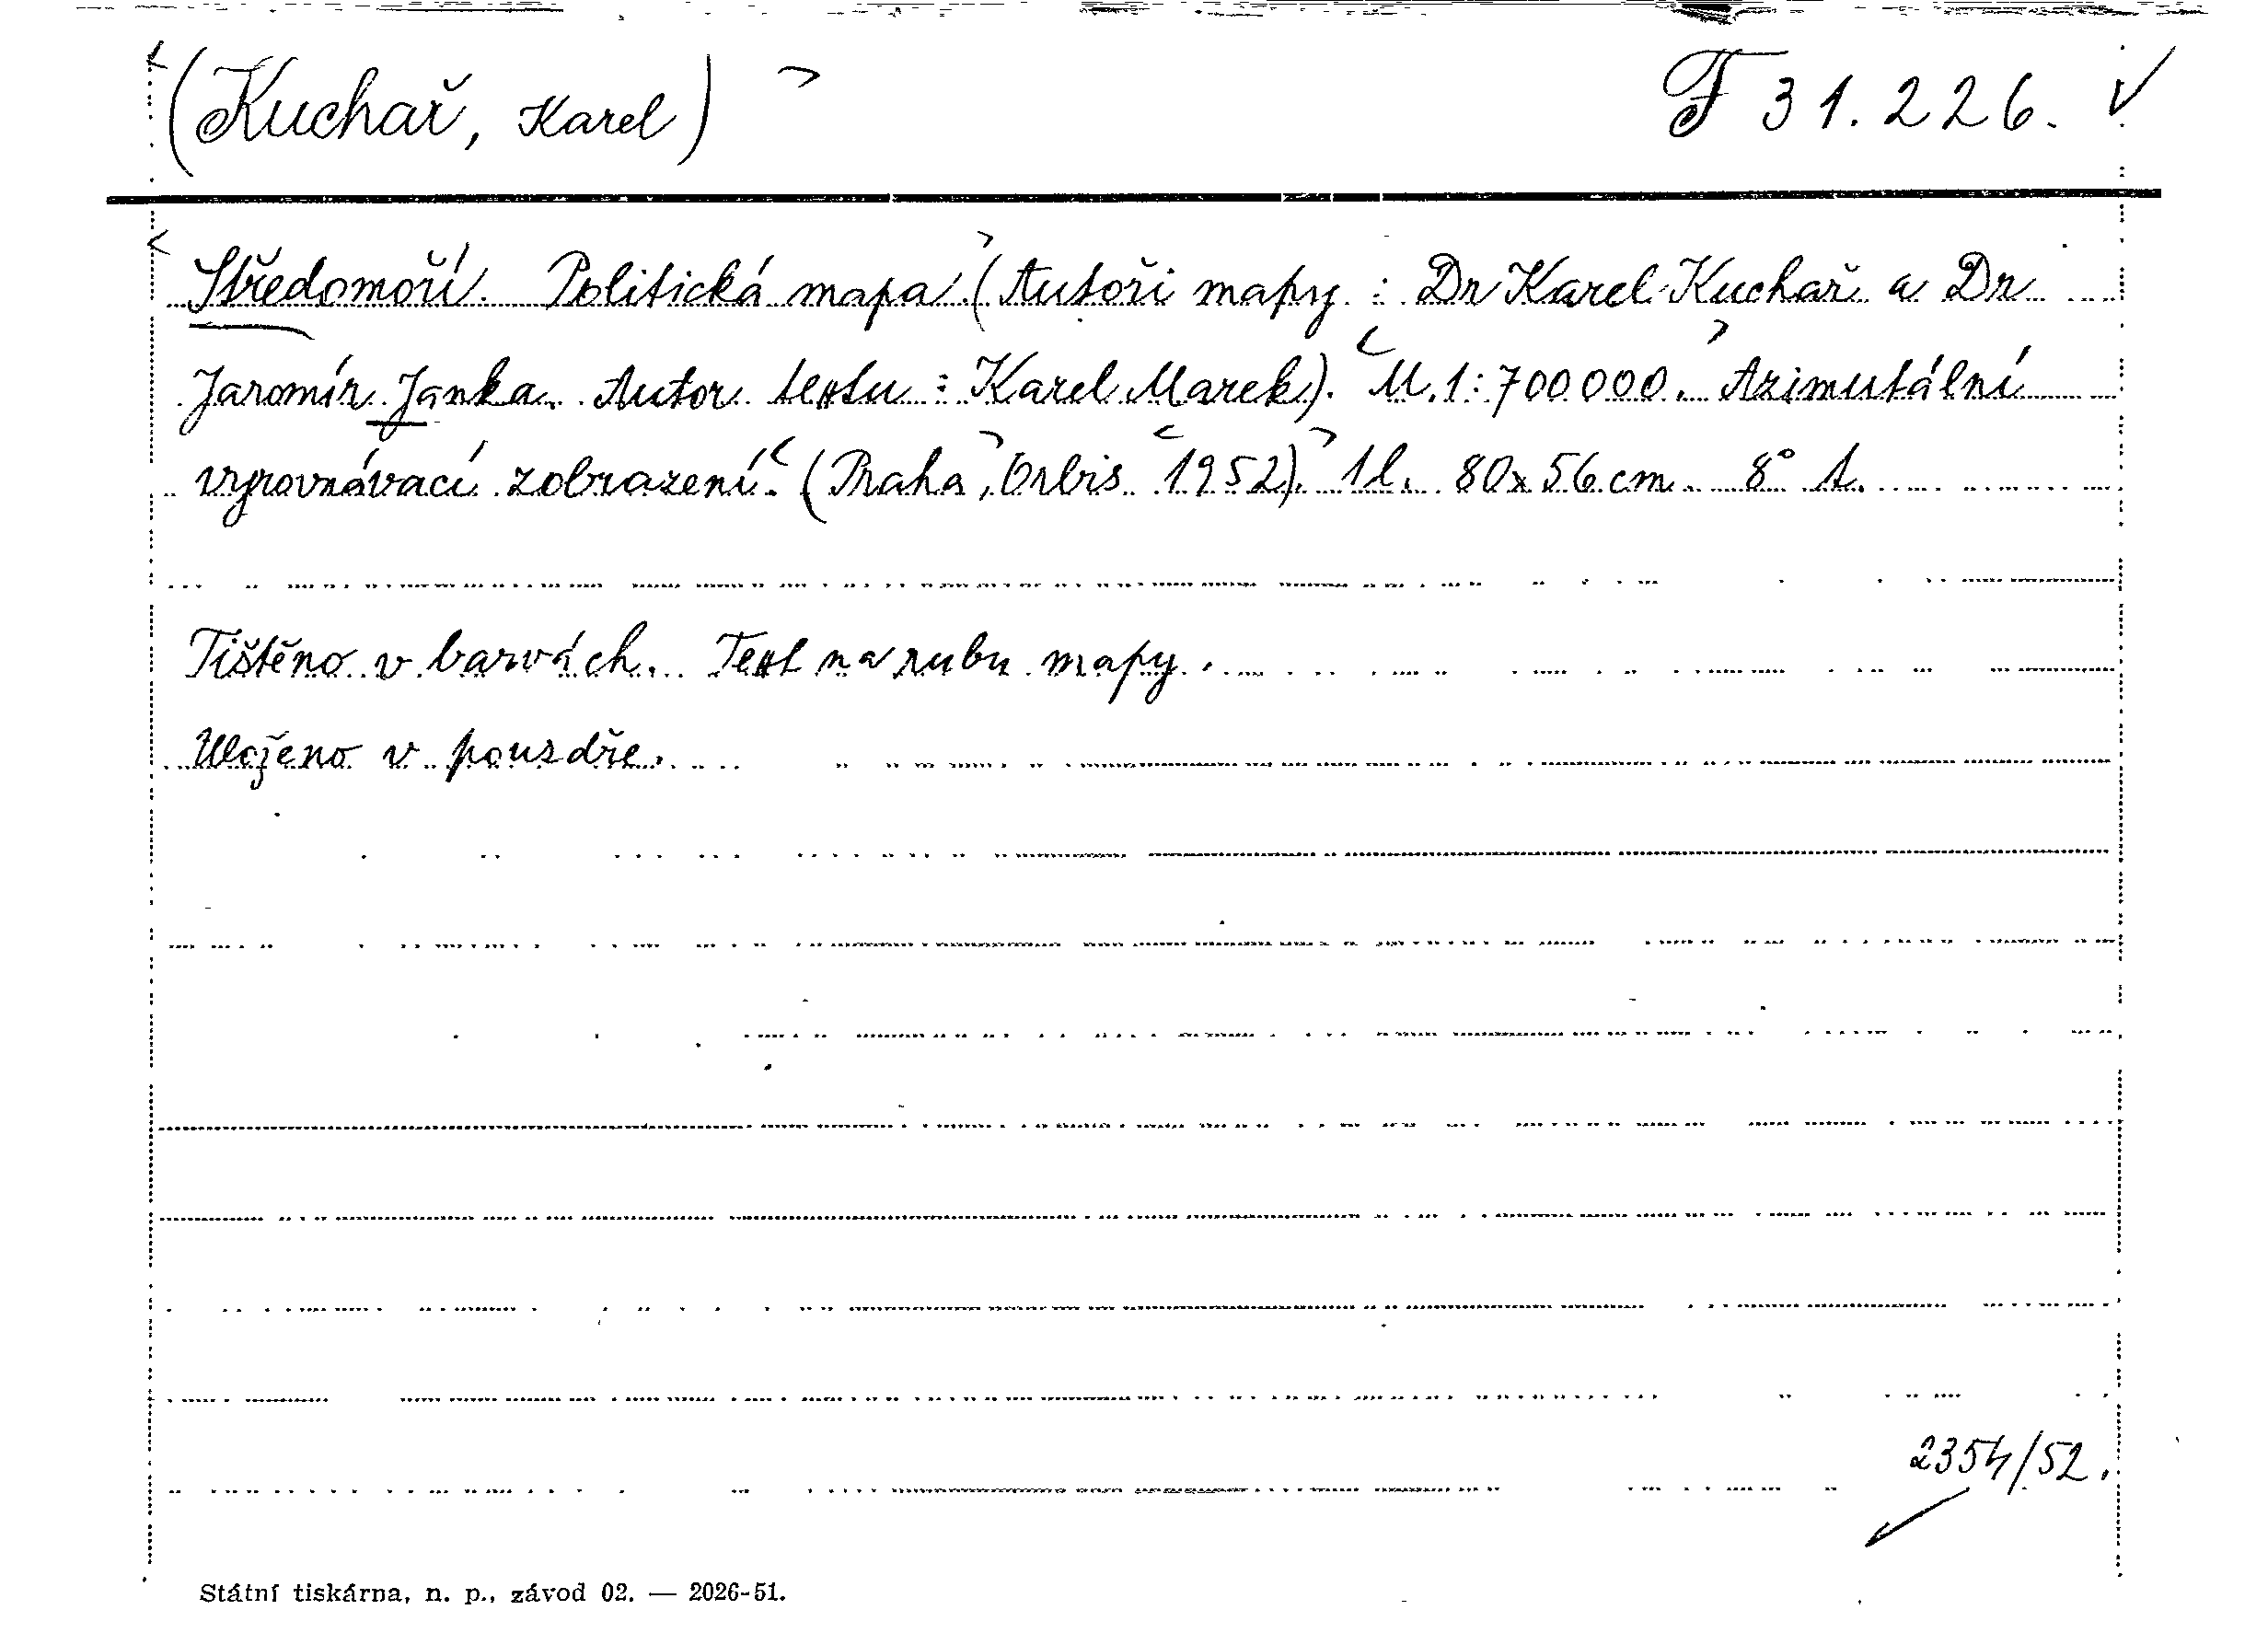 (Kuchař, Karel) F 31.226.
Středomoří. Politická mapa. (Autoři mapy: Dr Karel Kuchař a Dr
Jaromír Janka. Autor textu: Karel Marek). M. 1:700000. Azimutální
vyrovnávací zobrazení. (Praha, Orbis 1952). 1 l. 80x56 cm. 8°
Tištěno v barvách. Text na rubu mapy.
Uloženo v pouzdře.
2354/52.
Státní tiskárna, n. p., závod 02. — 2026-51.